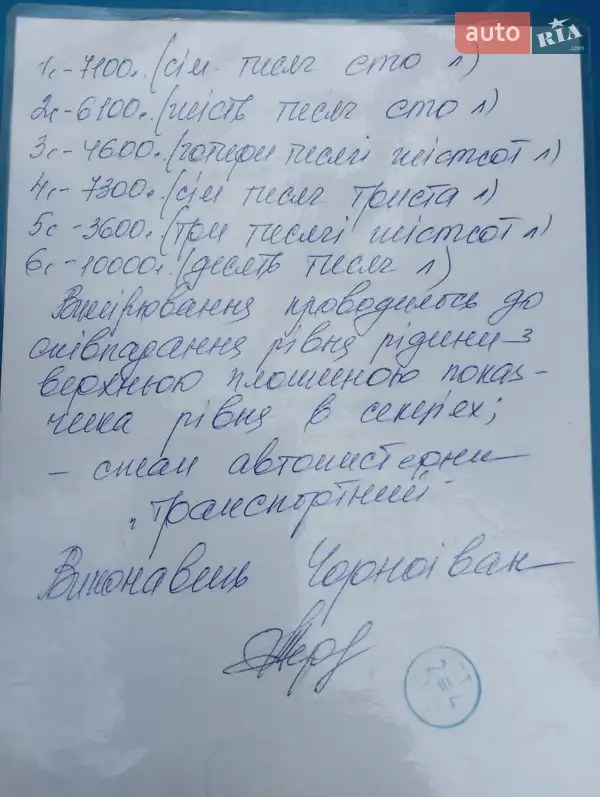 auto RIA .com
1с-7100л. (сім тисяч сто л)
2с-6100л. (шість тисяч сто л)
3с-4600л. (чотири тисячі шістсот л)
4с-7300л. (сім тисяч триста л)
5с-3600л. (три тисячі шістсот л)
6с-10000л. (десять тисяч л)
Вимірювання проводилось до
співпадання рівня рідини з
верхньою площиною показ-
чика рівня в секціях;
- стан автоцистерни
"Транспортний"
Виконавець Чорноіван